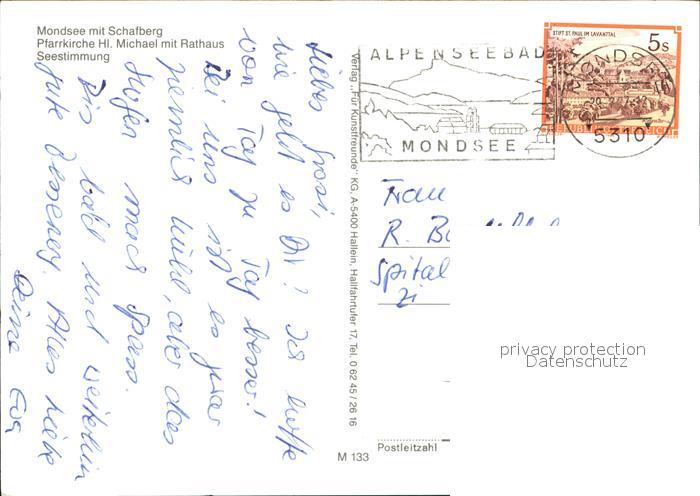 Mondsee mit Schafberg
Pfarrkirche Hl. Michael mit Rathaus
Seestimmung
Liebes Grosi,
wie geht es Dir? Ich hoffe
von Tag zu Tag besser!
Bei uns ist es zwar
ziemlich kühl, aber das
Surfen macht Spass.
Bis bald und weiterhin
gute Besserung. Alles Liebe
Deine Eva
Verlag „Für Kunstfreunde" KG, A-5400 Hallein, Hallfahrtufer 17, Tel. 0 62 45 / 26 16
M 133
ALPENSEEBAD
MONDSEE
STIFT ST. PAUL IM LAVANTTAL
5 S
REPUBLIK ÖSTERREICH
MONDSEE
5310
Frau
R.
Spital
Zi
privacy protection
Datenschutz
Postleitzahl